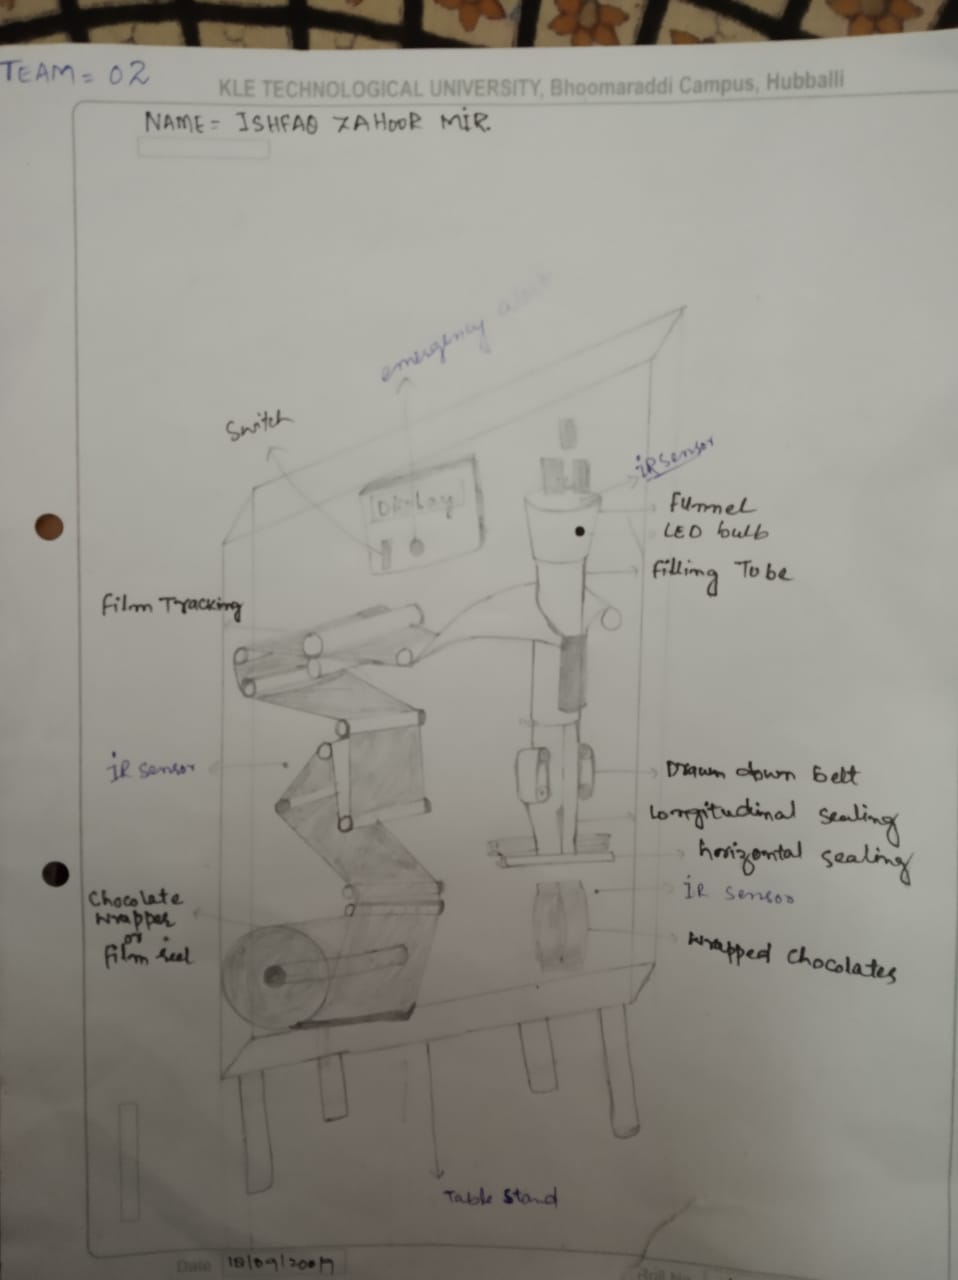 TEAM = 02
KLE TECHNOLOGICAL UNIVERSITY, Bhoomaraddi Campus, Hubballi
NAME = ISHFAQ ZAHOOR MIR.
emergency
Switch
Display
IR sensor
Funnel
LED bulb
Filling Tube
Film Tracking
IR sensor
Drawn down belt
Longitudinal sealing
horizontal sealing
IR sensor
Chocolate
wrapper
or
Film reel
wrapped chocolates
Table Stand
Date
Roll No